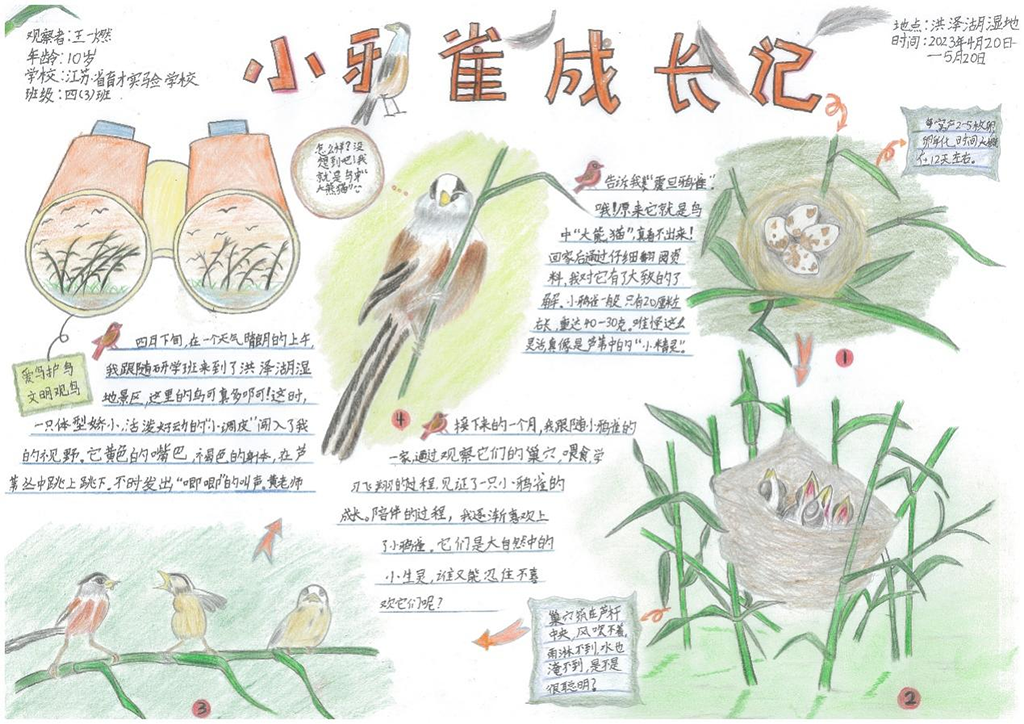 观察者:王一燃
年龄:10岁
学校:江苏省育才实验学校
班级:四(3)班
小鸦雀成长记
地点:洪泽湖湿地
时间:2023年4月20日-
—5月20日
怎么样?没
想到吧!我
就是鸟中"
大熊猫"
每窝产2-5枚卵
卵孵化时间大概
在12天左右。
爱鸟护鸟
文明观鸟
四月下旬,在一个天气晴朗的上午,
我跟随研学班来到了洪泽湖湿
地景区,这里的鸟可真多啊!这时,
一只体型娇小、活泼好动的"小调皮"闯入了我
的视野。它黄色的嘴巴,褐色的身体,在芦
苇丛中跳上跳下,不时发出"唧唧"的叫声,黄老师
告诉我是"震旦鸦雀".
哦!原来它就是鸟
中"大熊猫",真看不出来!
回家后通过仔细的阅资
料,我对它有了大致的了
解。小鸦雀一般只有20厘米左
右长,重达10-30克,难怪这么
灵活真像是芦苇中的"小精灵"。
接下来的一个月,我跟随小鸦雀的
一家,通过观察它们的巢穴、喂食、学
习飞翔的过程,见证了一只小鸦雀的
成长。陪伴的过程,我逐渐喜欢上
了小鸦雀。它们是大自然中的
小生灵,谁又能忍住不喜
欢它们呢?
巢穴筑在芦杆
中央,风吹不着,
雨淋不到,水也
淹不到,是不是
很聪明?
1
2
3
4